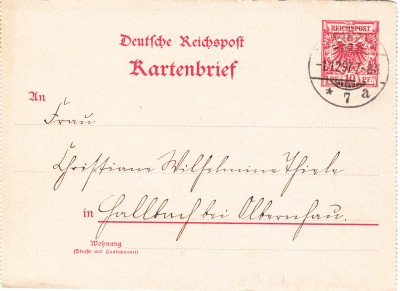 Deutsche Reichspost
Kartenbrief
REICHSPOST
10
PF.
7 a
An
Frau
Christiane Wilhelmine Thiele
in Hallbach bei Olbernhau.
Wohnung
(Straße und Hausnummer)